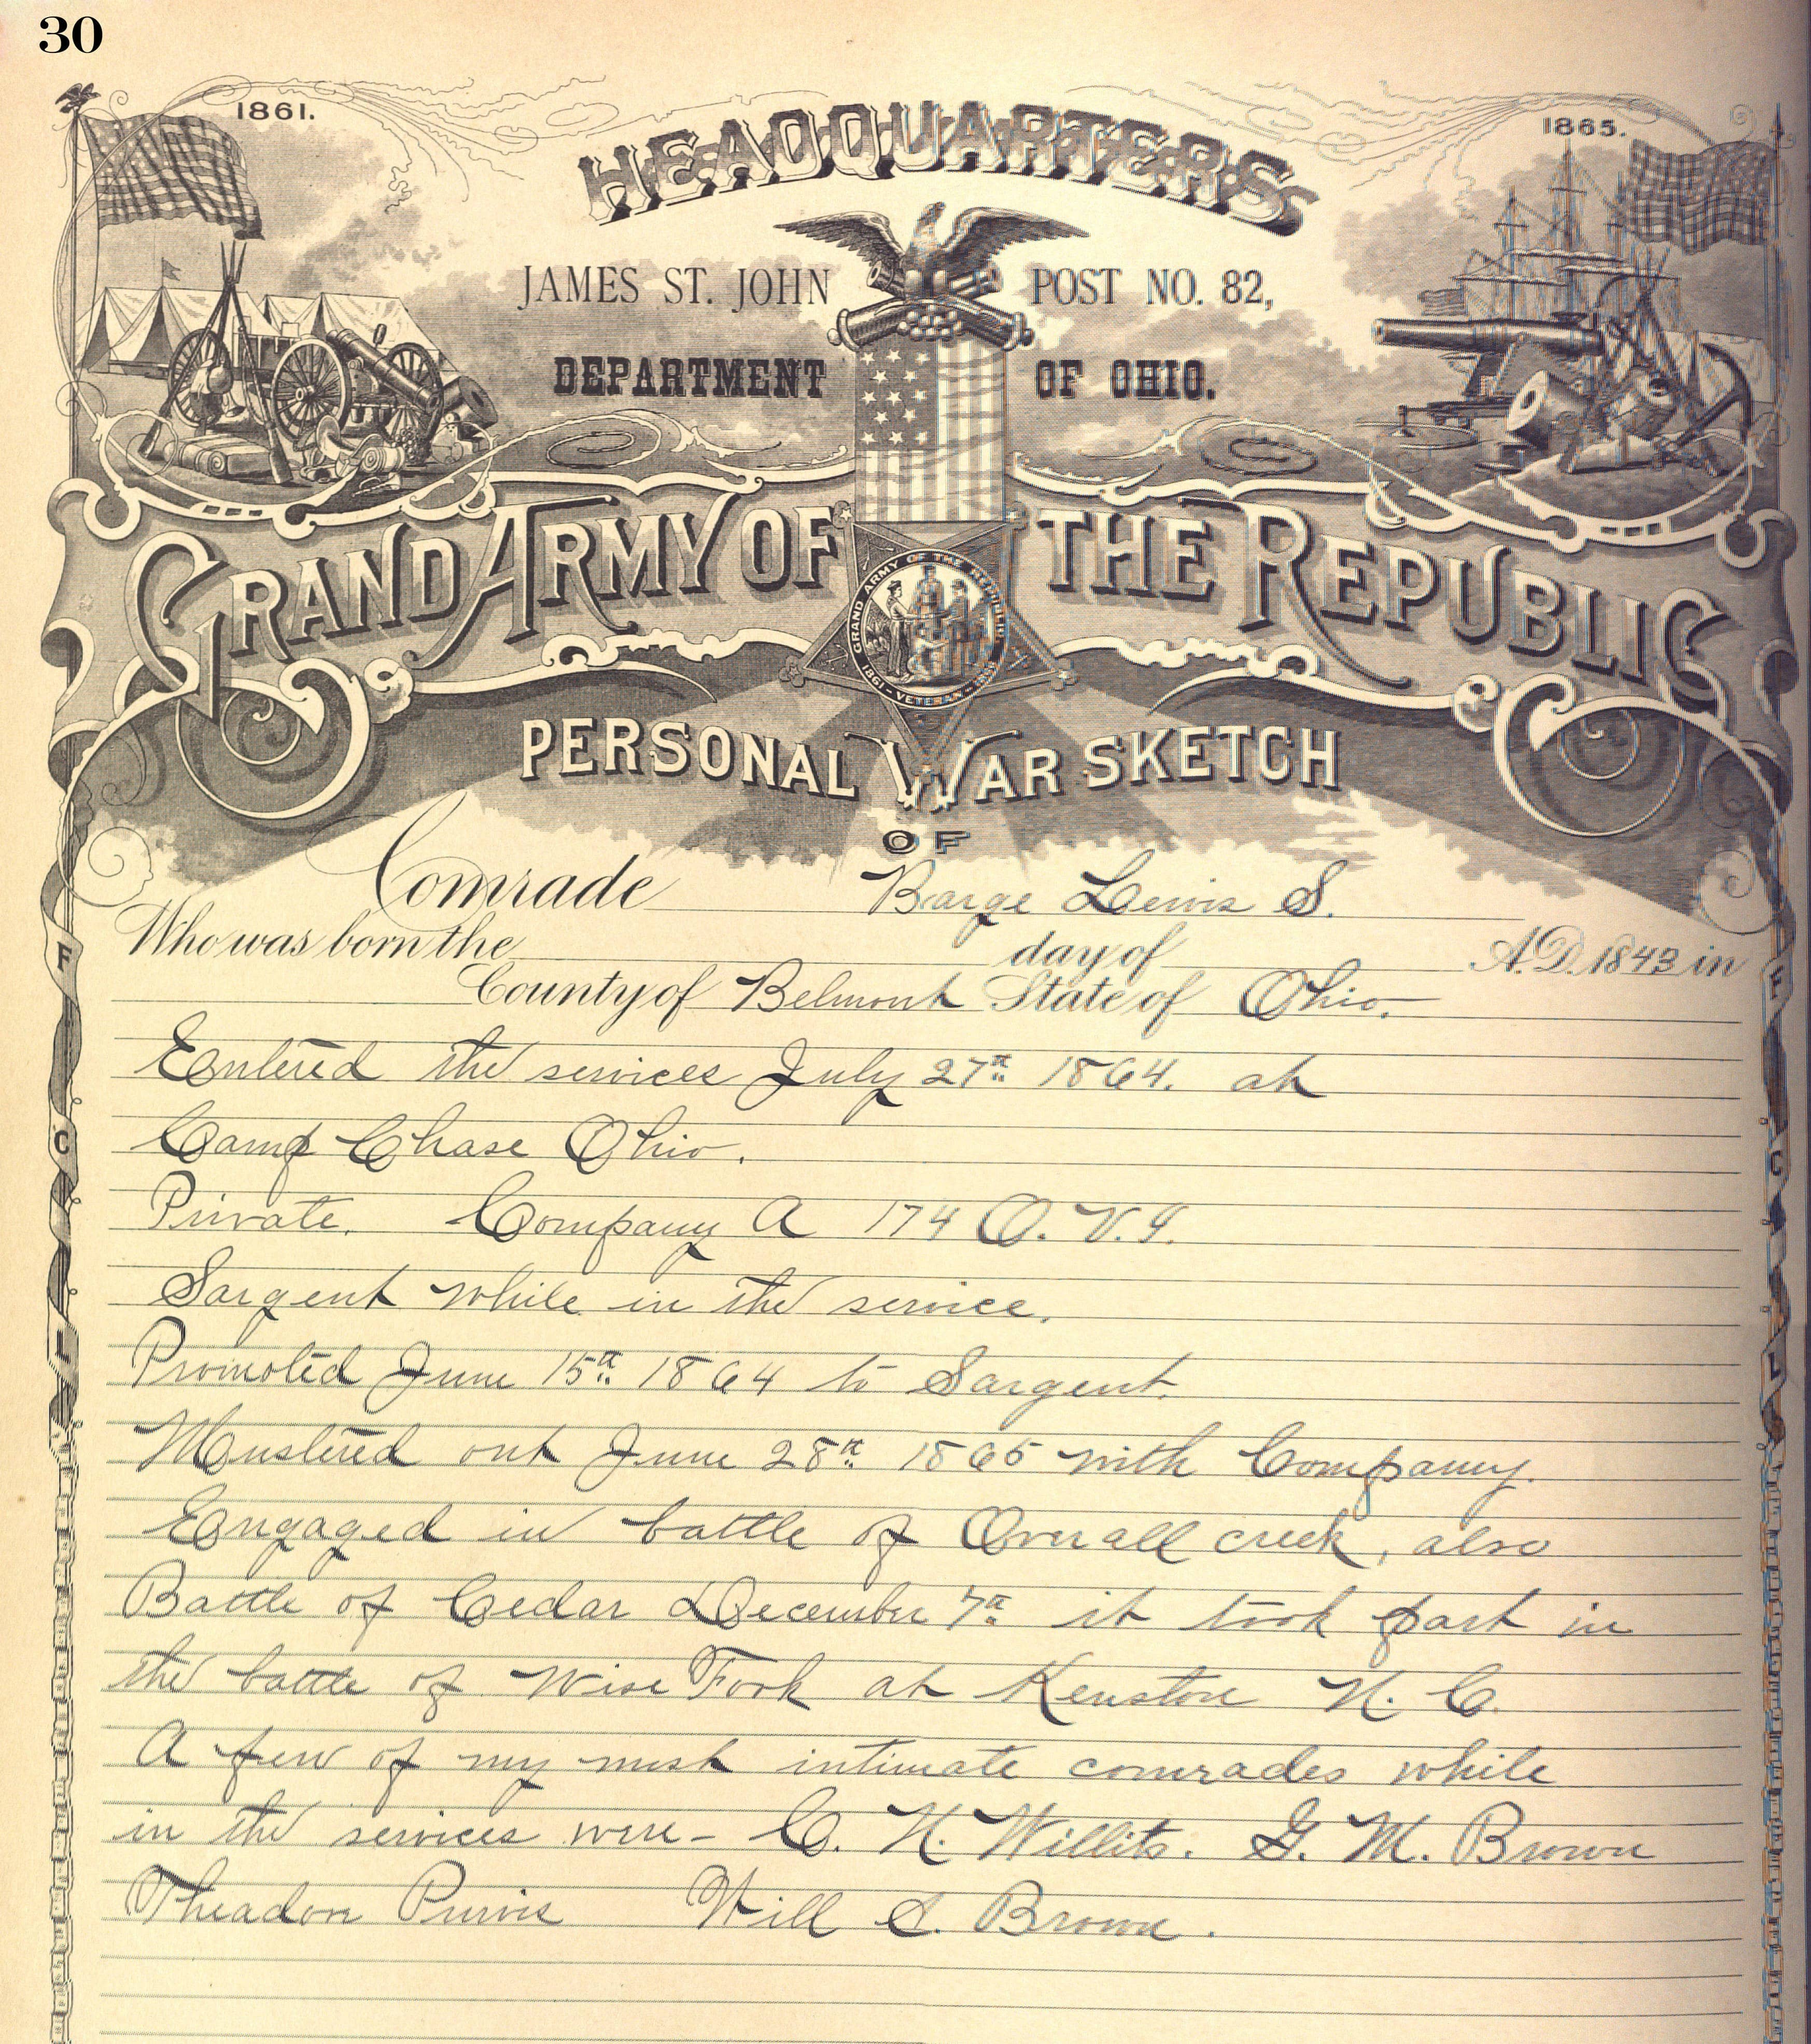 30
1861.
1865.
HEADQUARTERS
JAMES ST. JOHN POST NO. 82,
DEPARTMENT OF OHIO.
GRAND ARMY OF THE REPUBLIC
GRAND ARMY OF THE REPUBLIC
1861 - VETERAN - 1866
PERSONAL WAR SKETCH
OF
Comrade Barge Lewis S.
Who was born the day of A.D. 1843 in
County of Belmont State of Ohio.
Entered the services July 27th 1864. at
Camp Chase Ohio.
Private. Company A 174 O. V. I.
Sargent while in the service.
Promoted June 15th 1864 to Sargent.
Mustered out June 28th 1865 with Company.
Engaged in battle of Overall creek, also
Battle of Cedar December 7th it took part in
the battle of Wise Fork at Kenston N. C.
A few of my most intimate comrades while
in the services were - C. N. Willits. G. M. Brown
Theadore Purvis Will S. Brown.
F
C
L
F
C
L